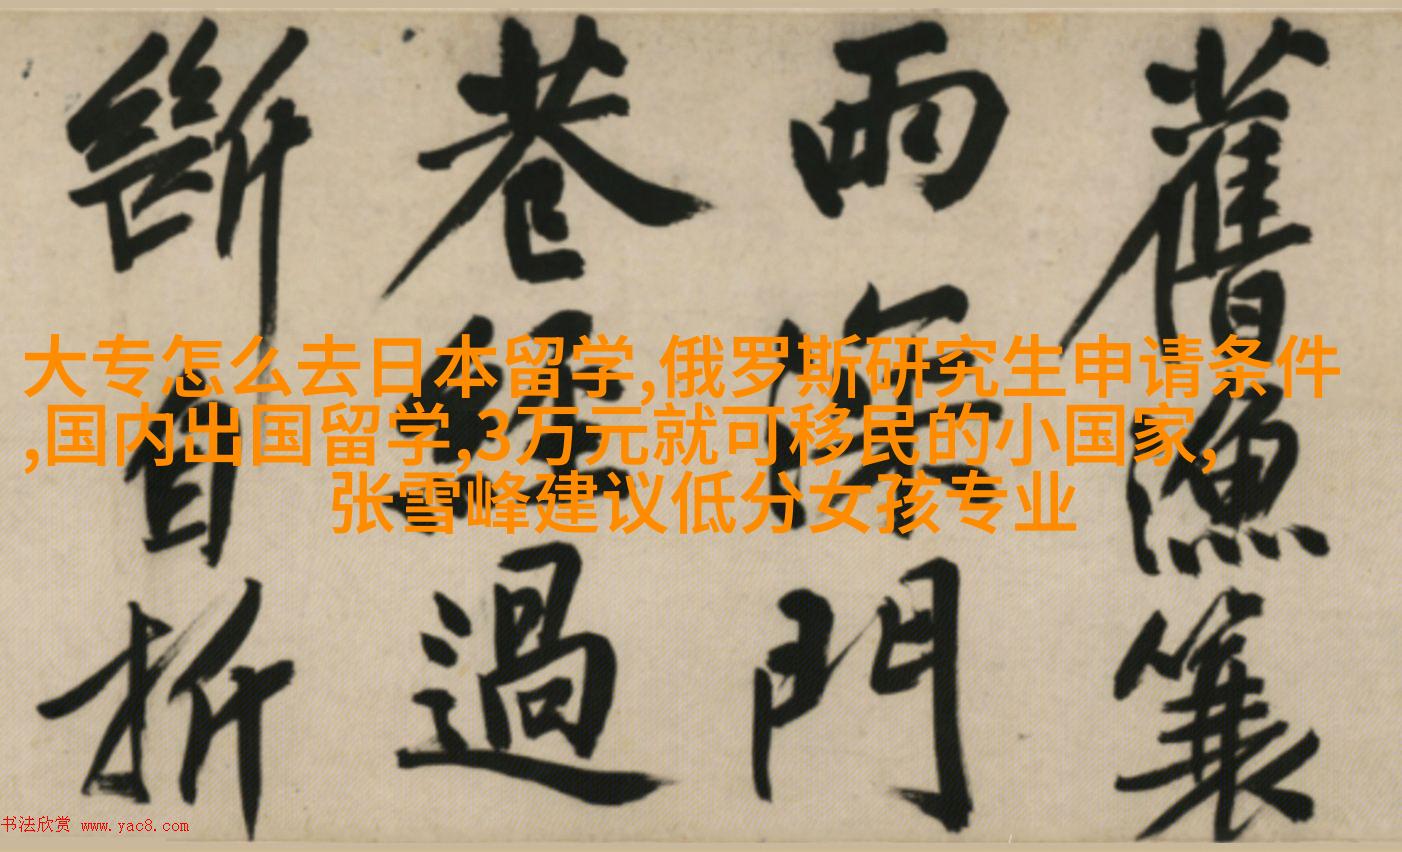 大专怎么去日本留学,俄罗斯研究生申请条件
,国内出国留学,3万元就可移民的小国家,
张雪峰建议低分女孩专业
舊漁蓑
雨深門
巷經過
斷自折
书法欣赏 www.yac8.com